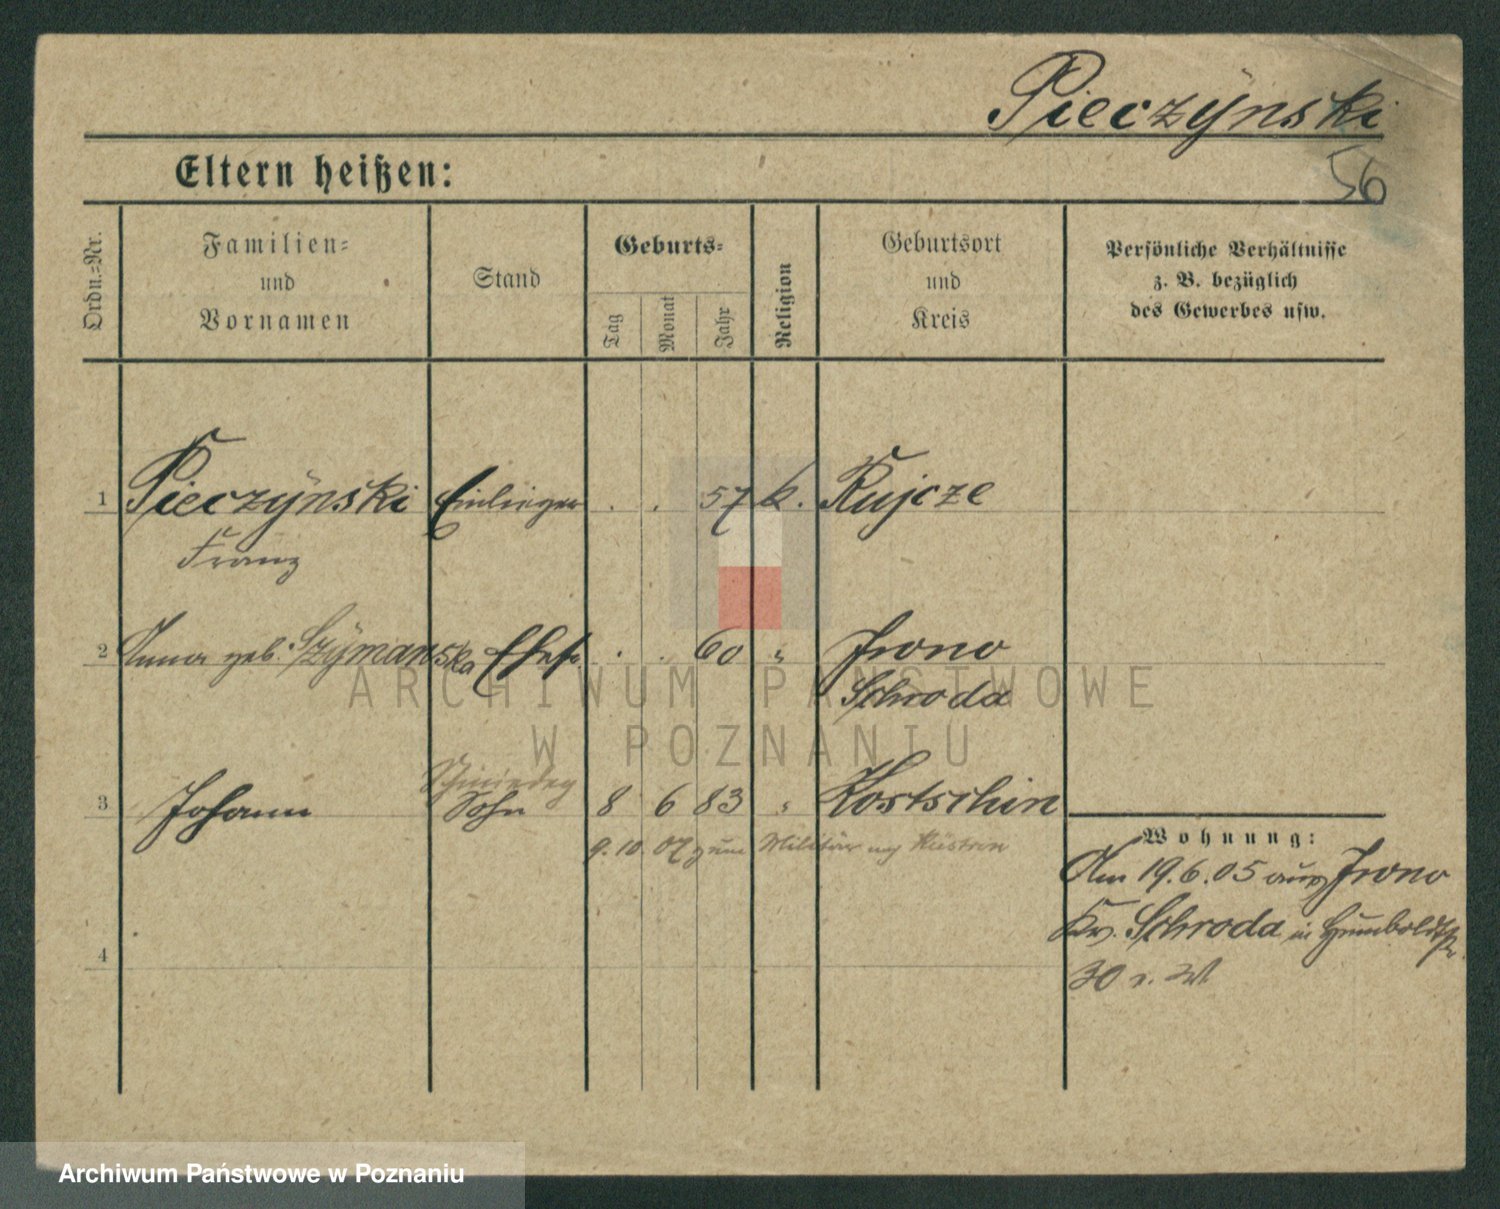 Pieczÿnski
56
Eltern heißen:
Ordn.=Nr.
Familien=
und
Vornamen
Stand
Geburts=
Tag
Monat
Jahr
Religion
Geburtsort
und
Kreis
Persönliche Verhältnisse
z. B. bezüglich
des Gewerbes usw.
1 Pieczÿnski Einlieger . . 57 k. Kujcze
Franz
2 Anna geb. Szÿmanska Ehefr. . . 60 " Jrono
Schroda
Schmiedeg
3 Johann Sohn 8 6 83 " Kostschin
9. 10. 07 zum Militär Küstrin
4
Wohnung:
Am 19.6.05 aus Jrono
Kr. Schroda in Humboldtstr.
30
ARCHIWUM PAŃSTWOWE
W POZNANIU
Archiwum Państwowe w Poznaniu